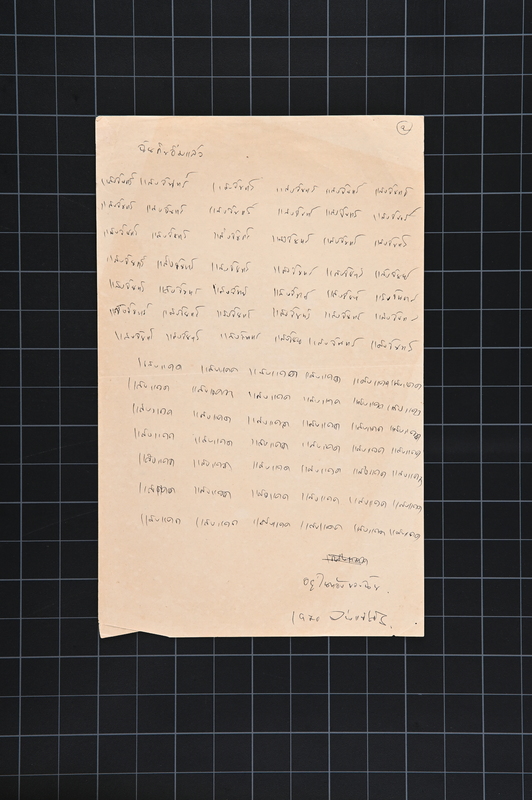 ฉันกินอิ่มแล้ว
แสงจันทร์ แสงจันทร์ แสงจันทร์ แสงจันทร์ แสงจันทร์ แสงจันทร์
แสงจันทร์ แสงจันทร์ แสงจันทร์ แสงจันทร์ แสงจันทร์ แสงจันทร์
แสงจันทร์ แสงจันทร์ แสงจันทร์ แสงจันทร์ แสงจันทร์ แสงจันทร์
แสงจันทร์ แสงจันทร์ แสงจันทร์ แสงจันทร์ แสงจันทร์ แสงจันทร์
แสงจันทร์ แสงจันทร์ แสงจันทร์ แสงจันทร์ แสงจันทร์ แสงจันทร์
แสงจันทร์ แสงจันทร์ แสงจันทร์ แสงจันทร์ แสงจันทร์ แสงจันทร์
แสงจันทร์ แสงจันทร์ แสงจันทร์ แสงจันทร์ แสงจันทร์ แสงจันทร์
แสงแดด แสงแดด แสงแดด แสงแดด แสงแดด แสงแดด
แสงแดด แสงแดด แสงแดด แสงแดด แสงแดด แสงแดด
แสงแดด แสงแดด แสงแดด แสงแดด แสงแดด แสงแดด
แสงแดด แสงแดด แสงแดด แสงแดด แสงแดด แสงแดด
แสงแดด แสงแดด แสงแดด แสงแดด แสงแดด แสงแดด
แสงแดด แสงแดด แสงแดด แสงแดด แสงแดด แสงแดด
แสงแดด แสงแดด แสงแดด แสงแดด แสงแดด แสงแดด
อยู่ในท้องของฉัน.
จ่างแซ่ตั้ง.